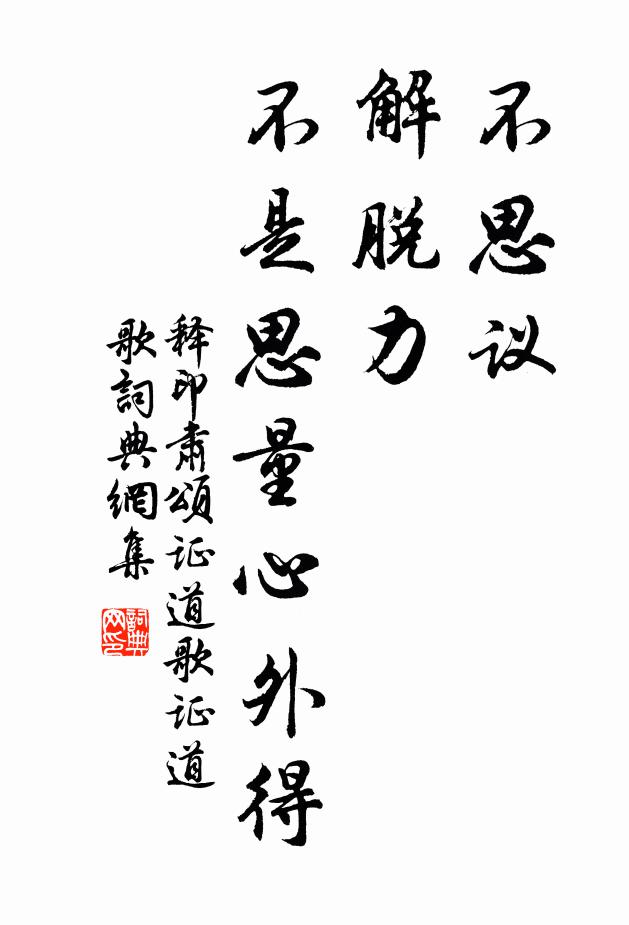 不思议
解脱力
不是思量心外得
释印肃颂证道歌证道
歌詞典網集
詞典
网印